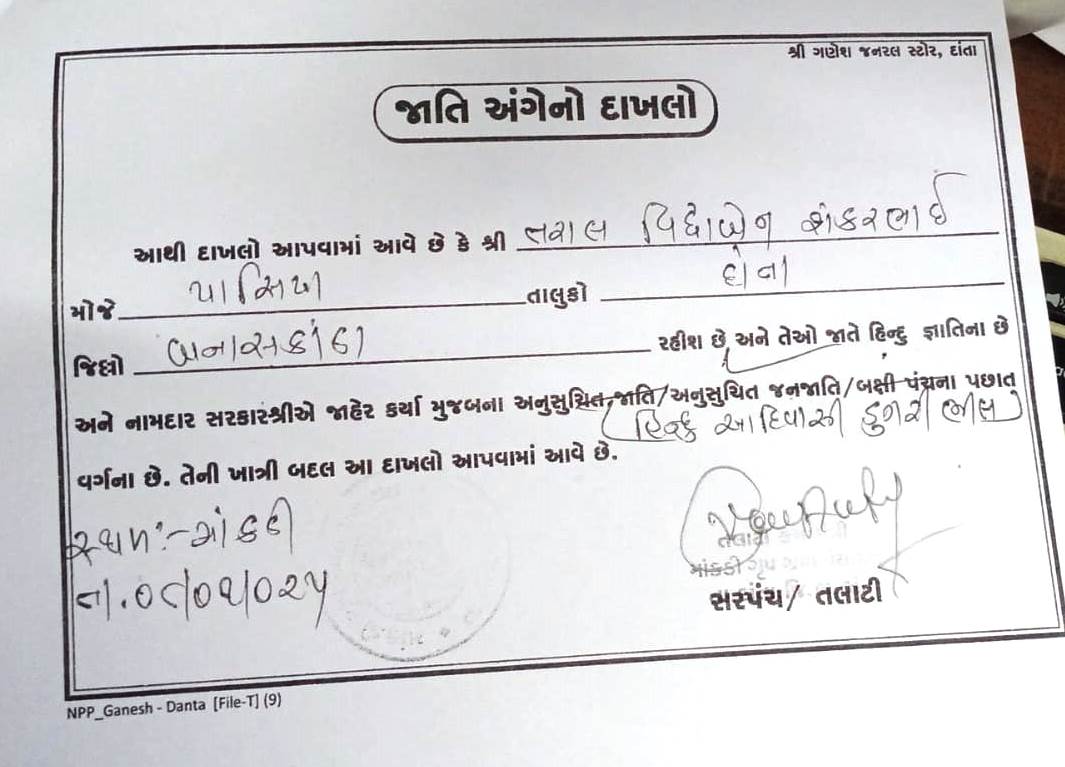 શ્રી ગણેશ જનરલ સ્ટોર, દાંતા
જાતિ અંગેનો દાખલો
આથી દાખલો આપવામાં આવે છે કે શ્રી તરાલ શંકરભાઈ
મોજે તાલુકો
જિલ્લો બનાસકાંઠા રહીશ છે અને તેઓ જાતે હિન્દુ જ્ઞાતિના છે
અને નામદાર સરકારશ્રીએ જાહેર કર્યા મુજબના અનુસુચિત જાતિ/અનુસુચિત જનજાતિ/બક્ષી પંચના પછાત
(હિન્દુ આદિવાસી ડુગરી ભીલ)
વર્ગના છે. તેની ખાત્રી બદલ આ દાખલો આપવામાં આવે છે.
સ્થળ:-માંકડી
તલાટી
માંકડી ગૃપ
સરપંચ/ તલાટી
NPP_Ganesh - Danta [File-T] (9)